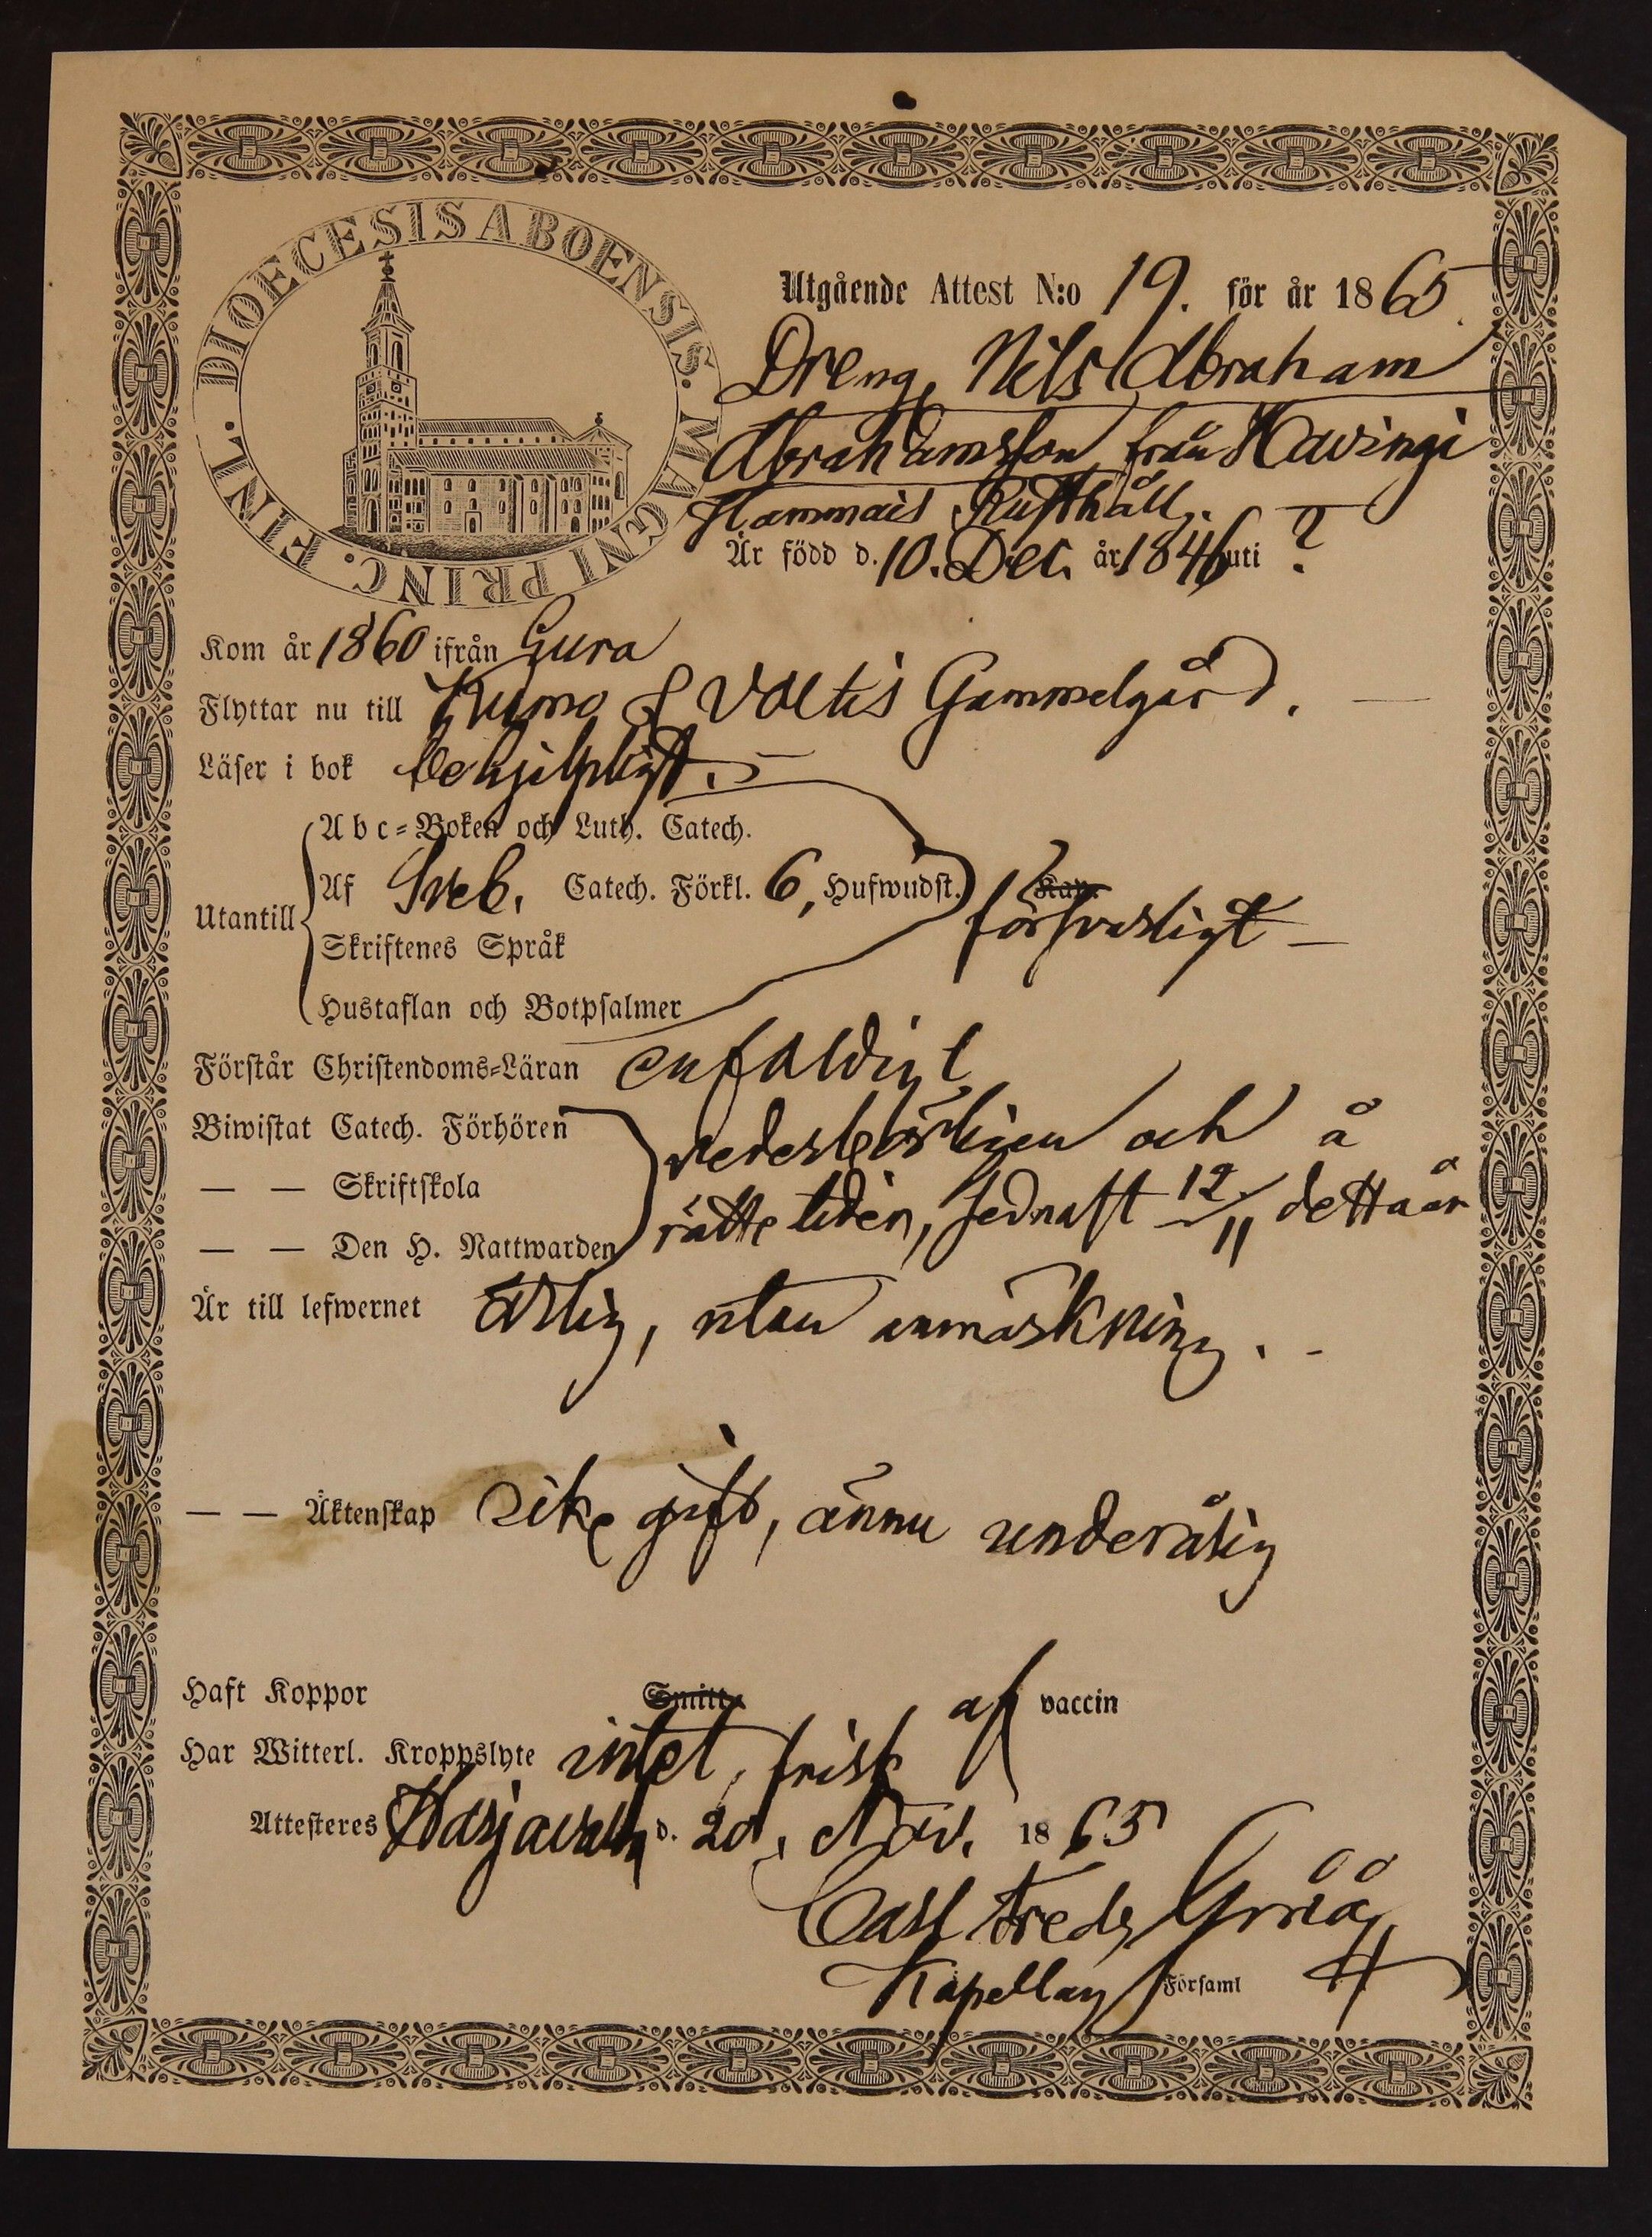 FINL. DIOECESIS ABOENSIS. MAGNI PRINC.
Utgående Attest N:o 19. för år 1865.
Dreng, Nils Abraham
Abrahamsson från Havingi
Hammais Rusthåll.
Är född d. 10. Dec. år 1846 uti ?
Kom år 1860 ifrån Eura
Flyttar nu till Kumo & Voitis Gammelgård.
Läser i bok behjelpligt.
Abc-Boken och Luth. Catech.
Utantill
Af Sveb. Catech. Förkl. 6, Hufwudst. Kap.
försvarligt
Skriftenes Språk
Hustaflan och Botpsalmer
Förstår Christendoms-Läran enfaldigt
Biwistat Catech. Förhören vederbörligen och å
— — Skriftskola
rätte tiden, sednast 12/11 detta år
— — Den H. Nattwarden
Är till lefwernet ärlig, utan anmärkning.
— — Äktenskap icke gift, ännu underårig
Haft Koppor Smitt. af vaccin
Har Witterl. Kroppslyte intet, frisk
Attesteres Harjavalta d. 20. Nov. 1865
Carl Fredr
Kapellan Församl